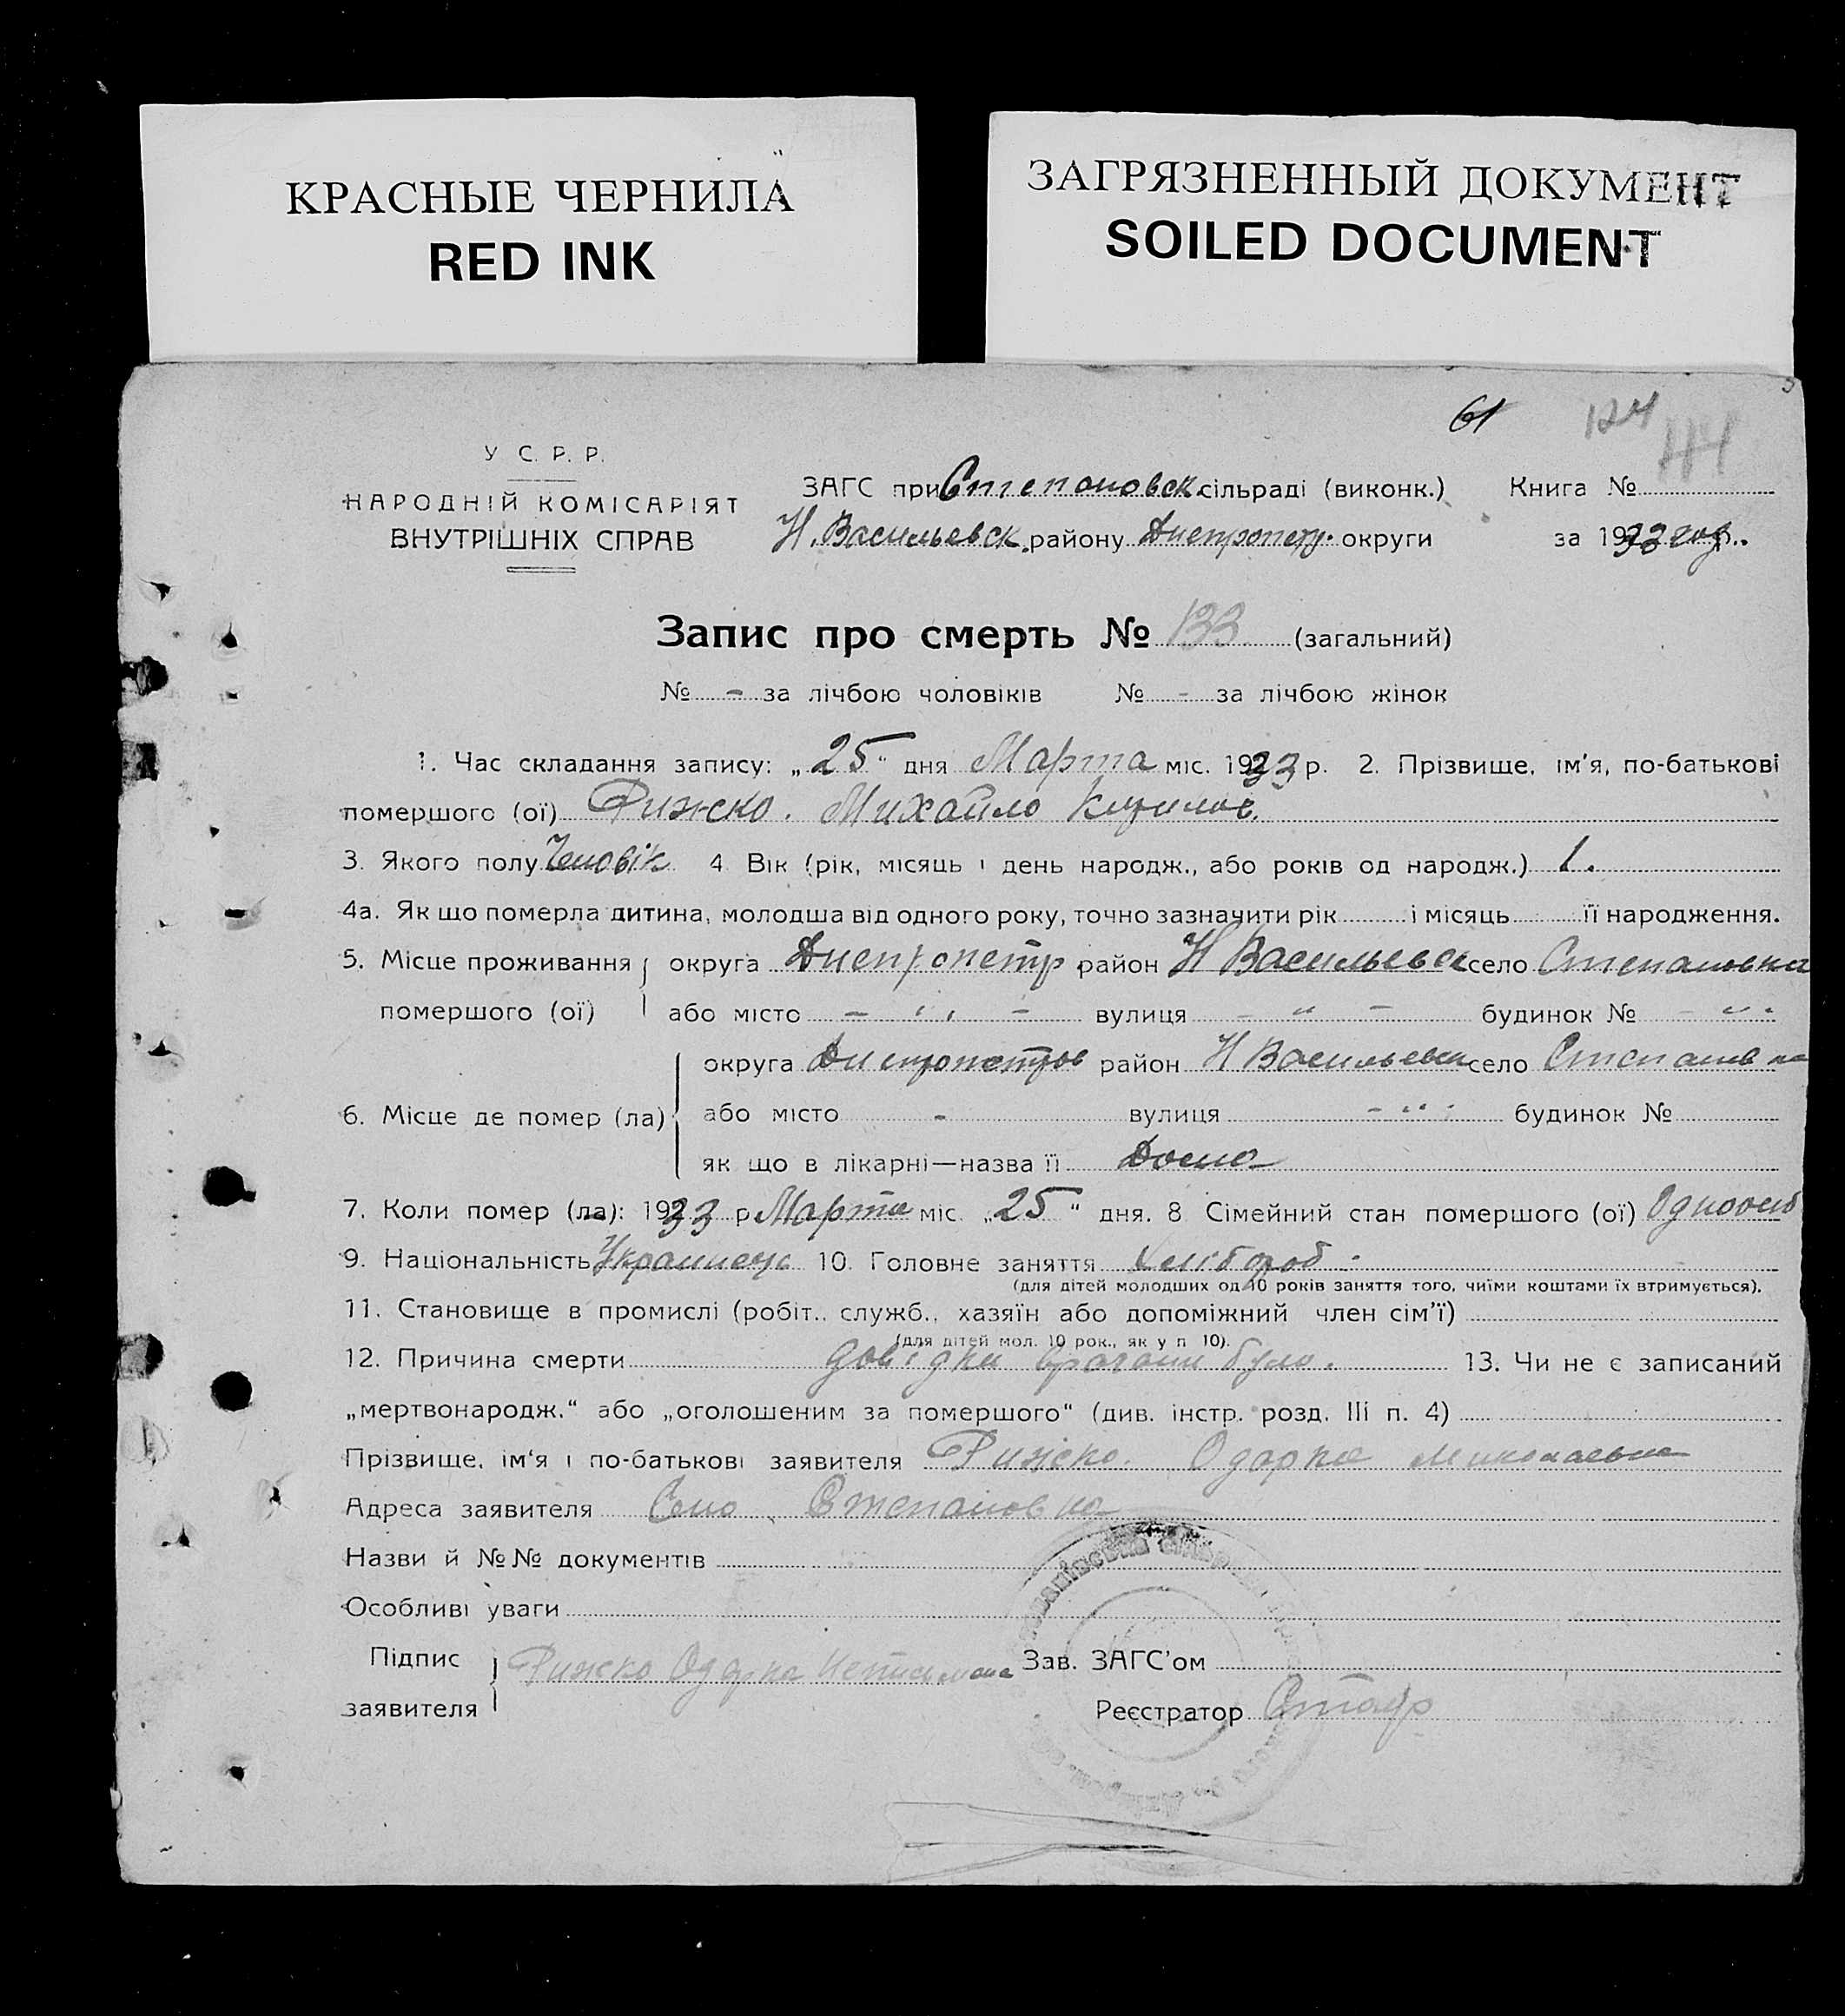 КРАСНЫЕ ЧЕРНИЛА
RED INK
ЗАГРЯЗНЕННЫЙ ДОКУМЕНТ
SOILED DOCUMENT
61 124 114
У С. Р. Р.
НАРОДНІЙ КОМІСАРІЯТ
ВНУТРІШНІХ СПРАВ
ЗАГС при Степановск. сільраді (виконк.) Книга №
Н. Васильевск. району Днепропетр. округи за 1933 год.
Запис про смерть № 133 (загальний)
№ - за лічбою чоловіків № - за лічбою жінок
1. Час складання запису: „25“ дня Марта міс. 1933 р. 2. Прізвище, ім’я, по-батькові
помершого (ої) Рижко. Михайло Кирилов.
3. Якого полу Чоловік 4 Вік (рік, місяць і день народж., або років од народж.) 1.
4а. Як що померла дитина, молодша від одного року, точно зазначити рік і місяць її народження.
5. Місце проживання округа Днепропетр район Н Васильевск село Степановка
помершого (ої) або місто - „ - вулиця - „ - будинок № - „ -
округа Днепропетров район Н Васильевск село Степановка
6. Місце де помер (ла) або місто - вулиця - „ - будинок №
як що в лікарні—назва її Дома
7. Коли помер (ла): 1933 р Марта міс. „25“ дня. 8 Сімейний стан помершого (ої)
9. Національність Украинець 10. Головне заняття хлібороб.
(для дітей молодших од 10 років заняття того, чиїми коштами їх втримується).
11. Становище в промислі (робіт., служб., хазяїн або допоміжний член сім’ї)
(для дітей мол. 10 рок., як у п 10).
12. Причина смерти довідки було. 13. Чи не є записаний
„мертвонародж.“ або „оголошеним за помершого“ (див. інстр. розд. III п. 4)
Прізвище, ім’я і по-батькові заявителя Рижко. Одарка Миколаевна
Адреса заявителя Село Степановка
Назви й №№ документів
Особливі уваги
Підпис Рижко Одарка Зав. ЗАГС’ом
заявителя Реєстратор